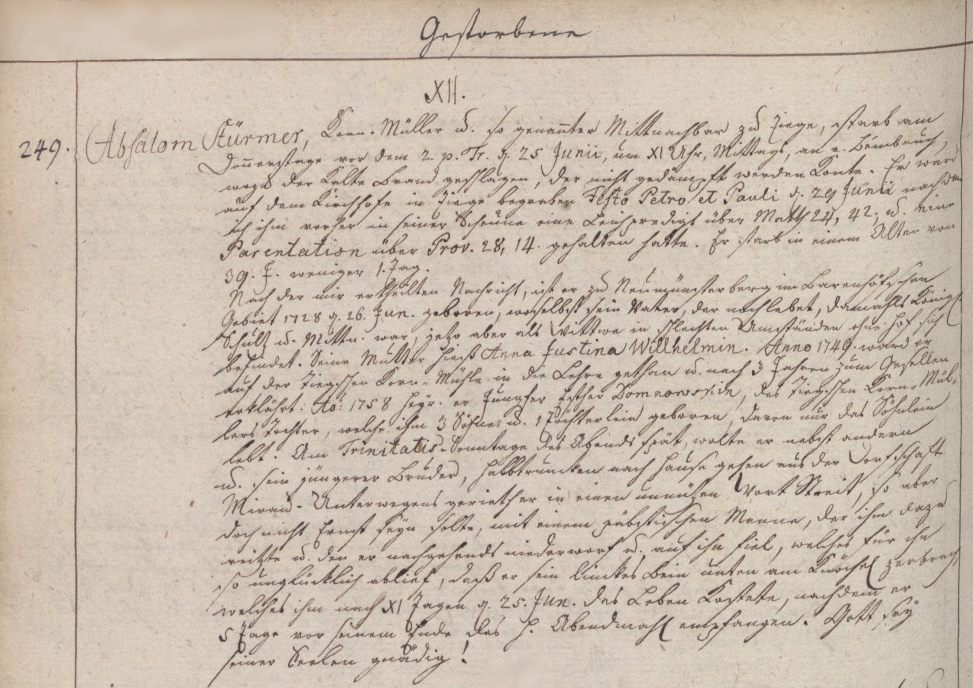 Gestorbene
XII.
249. Absalom Stürmer, Korn-Müller u. so genannter Mittnachbar zu Ziege, starb am
Donnerstage vor dem 2. p. Tr. d. 25 Junii, um XI Uhr, Mittags, an e. Beinbruch,
wozu der Kalte Brand geschlagen, der nicht gedämpft werden konte. Er ward
auf dem Kirchhofe in Ziege begraben Festo Petro et Pauli d. 29 Junii nachdem
ich ihm vorher in seiner Scheune eine Leichpredigt über Matth 24, 42. u. eine
Parentation über Prov. 28, 14. gehalten hatte. Er starb in einem Alter von
39. J. weniger 1. Tag.
Nach der mir ertheilten Nachricht, ist er zu Neumünsterberg im Barenhöfschen
Gebiet 1728 d. 26. Jun. geboren, woselbst sein Vater, der noch lebet, damahls König.
Schulz u. Mittn. war, jetzo aber als Wittwer in schlechten Umständen ohne Hof sich
befindet. Seine Mutter hiess Anna Justina Willhelmin. Anno 1749. ward er
auf der Ziegschen Korn-Mühle in die Lehre gethan u. nach 3 Jahren zum Gesellen
erklährt. Ao: 1758 heyr. er Jungfer Esther Domnowskin, des Ziegschen Korn-Mül-
lers Tochter, welche ihm 3 Söhne u. 1 Töchterlein geboren, davon nur das Söhnlein
lebt. Am Trinitatis-Sonntage des Abends spät, wolte er nebst andern
u. sein jüngerer Bruder, halbtruncken nach Hause gehen aus der Dorfschaft
Mirau. Unterwegens gerieth er in einen unnützen Wort Streit, so aber
doch nicht Ernst seyn solte, mit einem päbstischen Manne, der ihn dazu
reitzte u. den er nachgehends niederworf u. auf ihn fiel, welches für ihn
so unglücklich ablief, daß er sein linckes Bein unten am Knöchel zerbrach,
welches ihm nach XI Tagen d. 25. Jun. das Leben kostete, nachdem er
5 Tage vor seinem Ende das H. Abendmahl empfangen. Gott sey
seiner Seelen gnädig!